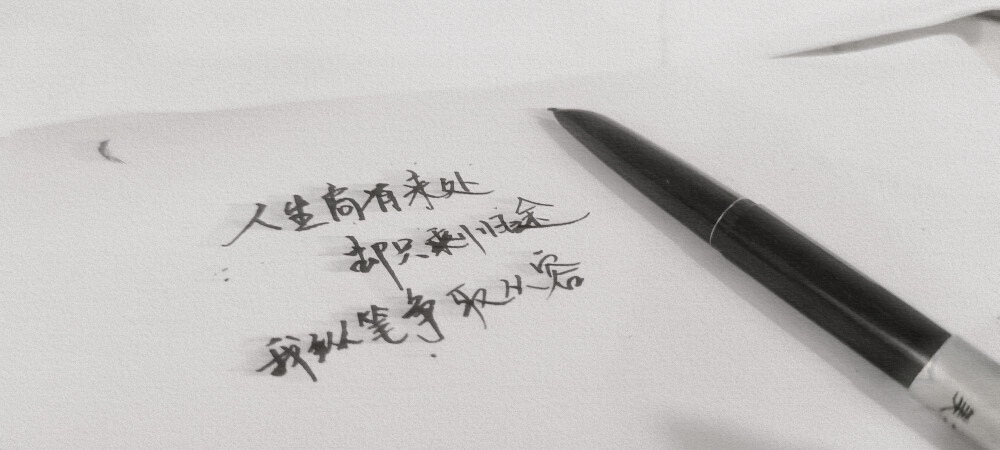 人生尚有来处
却只来归途
我纵笔争取从容
美